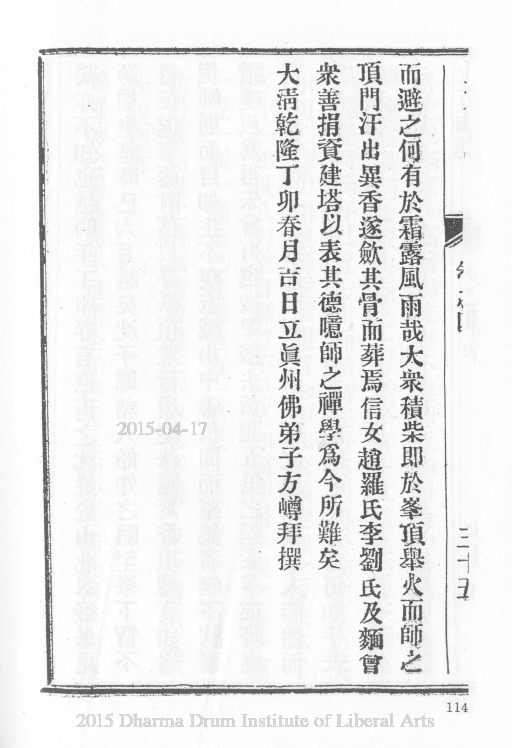 卷之四
三十五
而避之何有於霜露風雨哉大衆積柴即於峯頂舉火而師之
頂門汗出異香遂歛其骨而葬焉信女趙羅氏李劉氏及麵會
衆善捐資建塔以表其德噫師之禪學爲今所難矣
大淸乾隆丁卯春月吉日立眞州佛弟子方嶟拜撰
2015-04-17
114
2015 Dharma Drum Institute of Liberal Arts